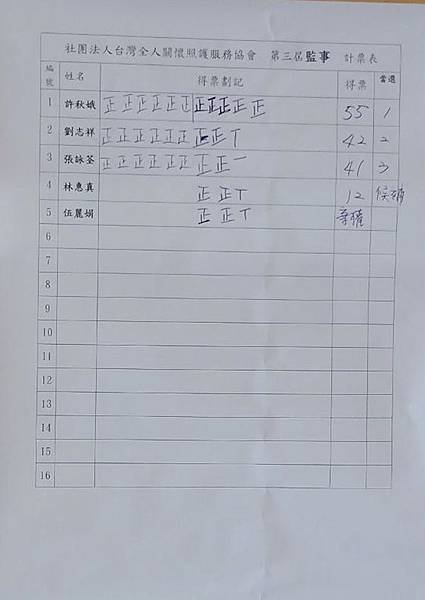 社團法人台灣全人關懷照護服務協會 第三屆監事 計票表
編號 姓名 得票劃記 得票 當選
1 許秋娥 正正正正正正正正正正正 55 1
2 劉志祥 正正正正正正正正丅 42 2
3 張詠荃 正正正正正正正正一 41 3
4 林惠真 正正丅 12 候補
5 伍麗娟 正正丅 棄權
6
7
8
9
10
11
12
13
14
15
16